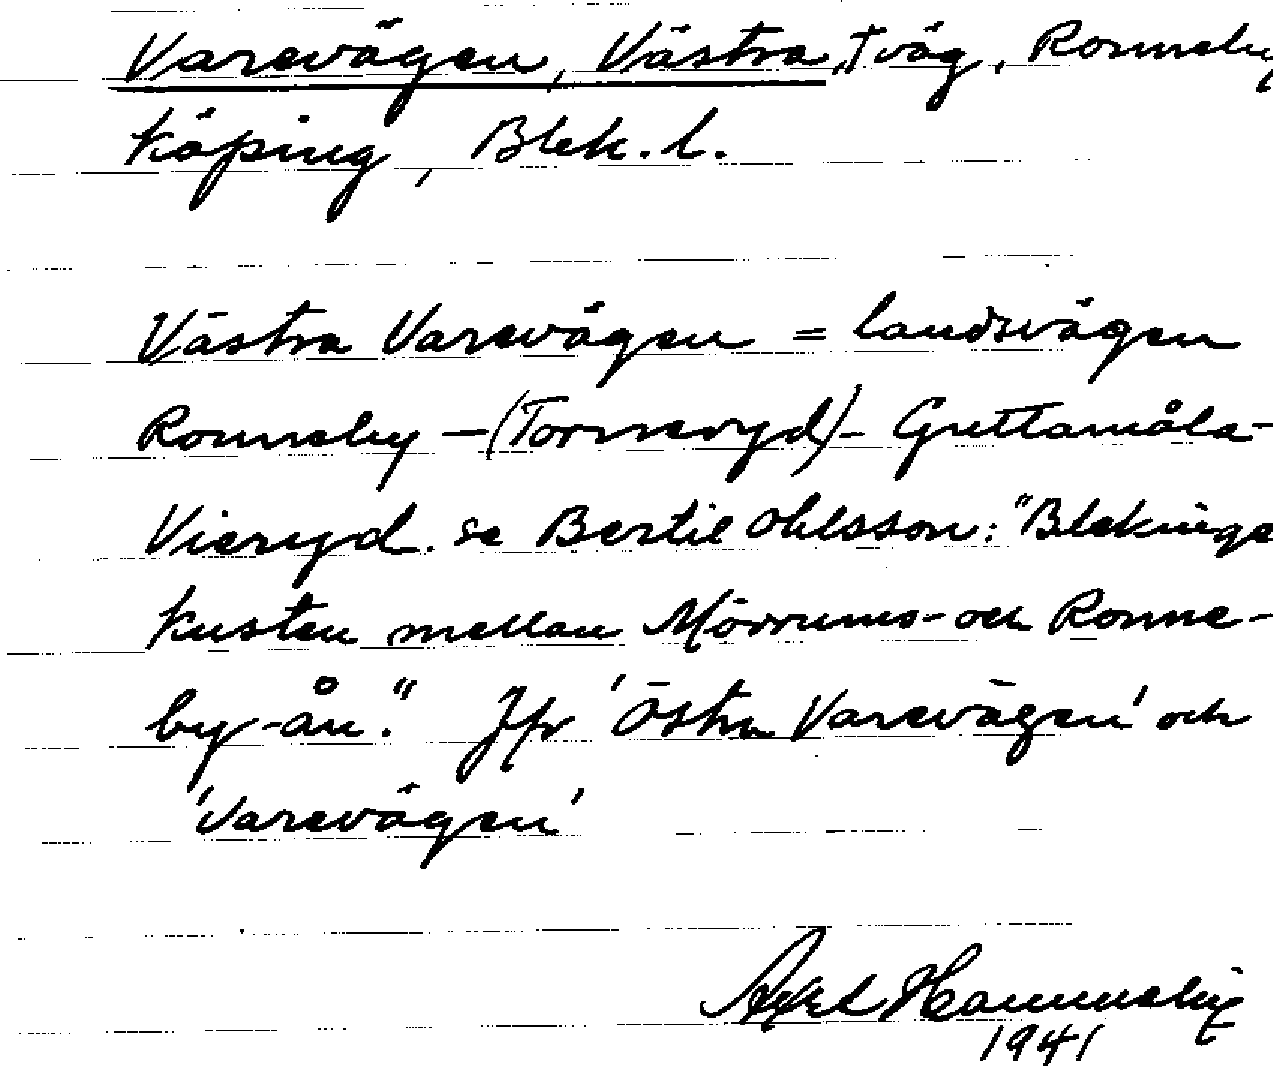 Varevägen, Västra, †väg, Ronneby
köping, Blek. l.
Västra Varevägen = landsvägen
Ronneby – (Tornaryd) – Guttamåla-
Vieryd. se Bertil Ohlsson: "Blekinge
kusten mellan Mörrums- och Ronne-
by-ån." Jfr 'Östra Varevägen' och
'Varevägen'
Axel
1941